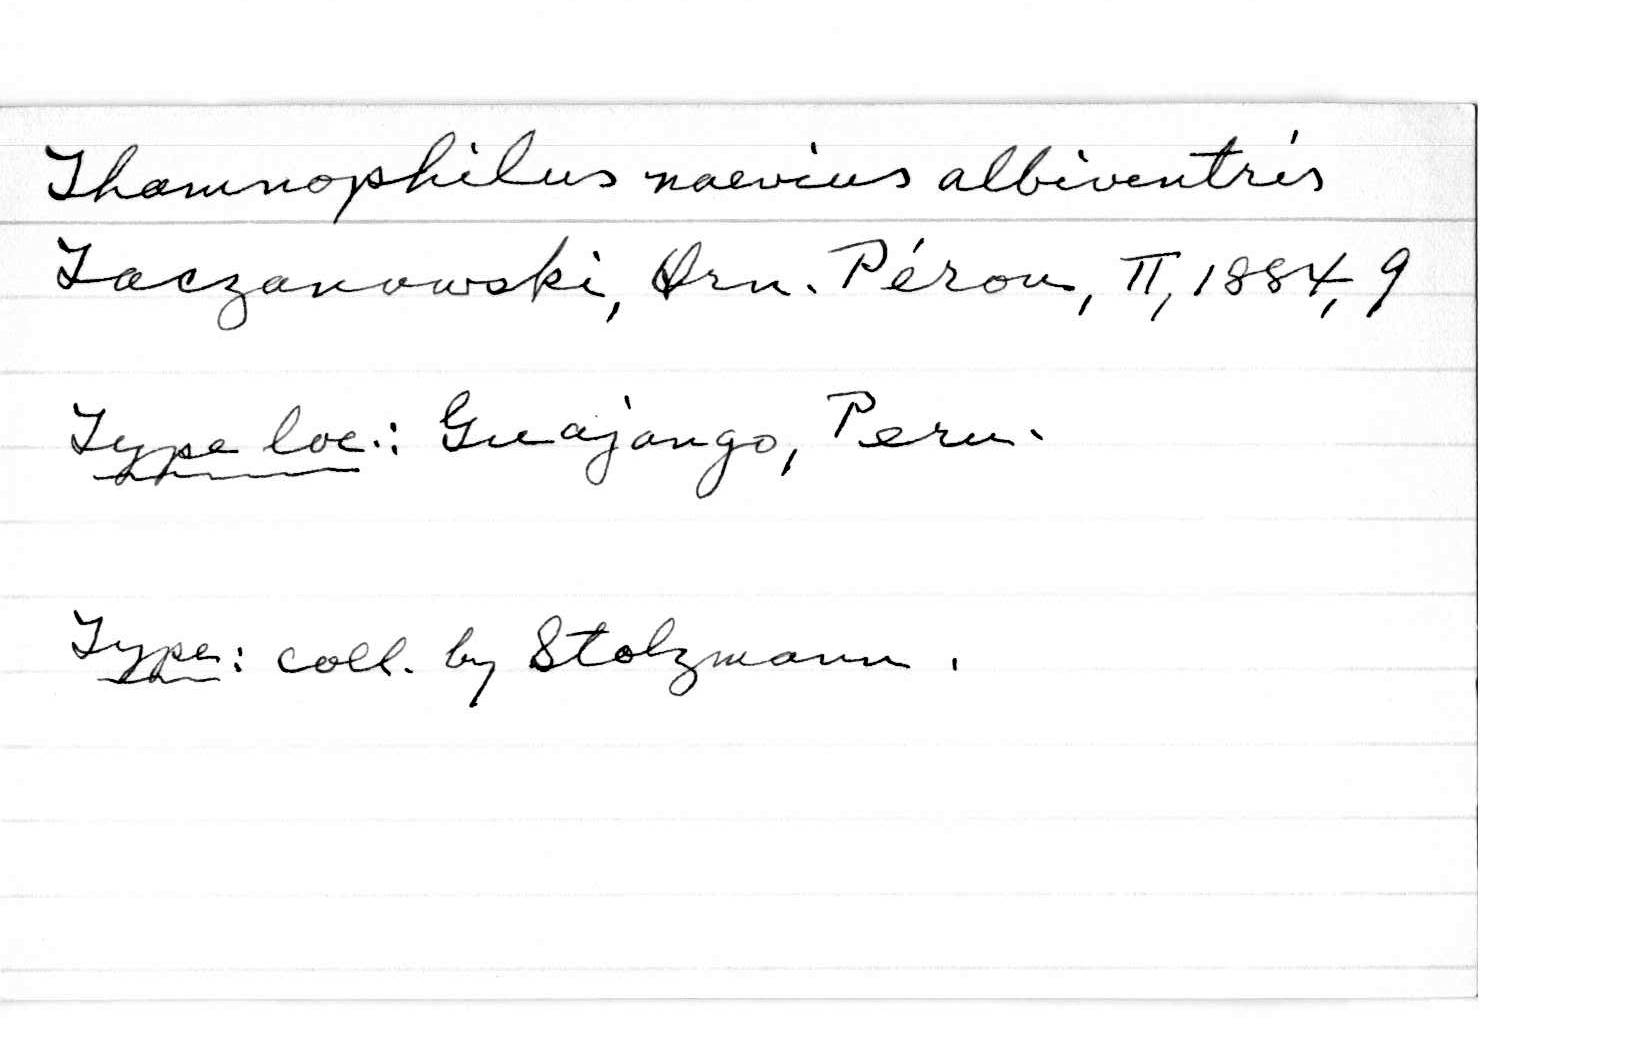 Thamnophilus naevius albiventris
Taczanowski, Orn. Pérou, II, 1884, 9
Type loc.: Guajango, Peru.
Type: coll. by Stolzmann.